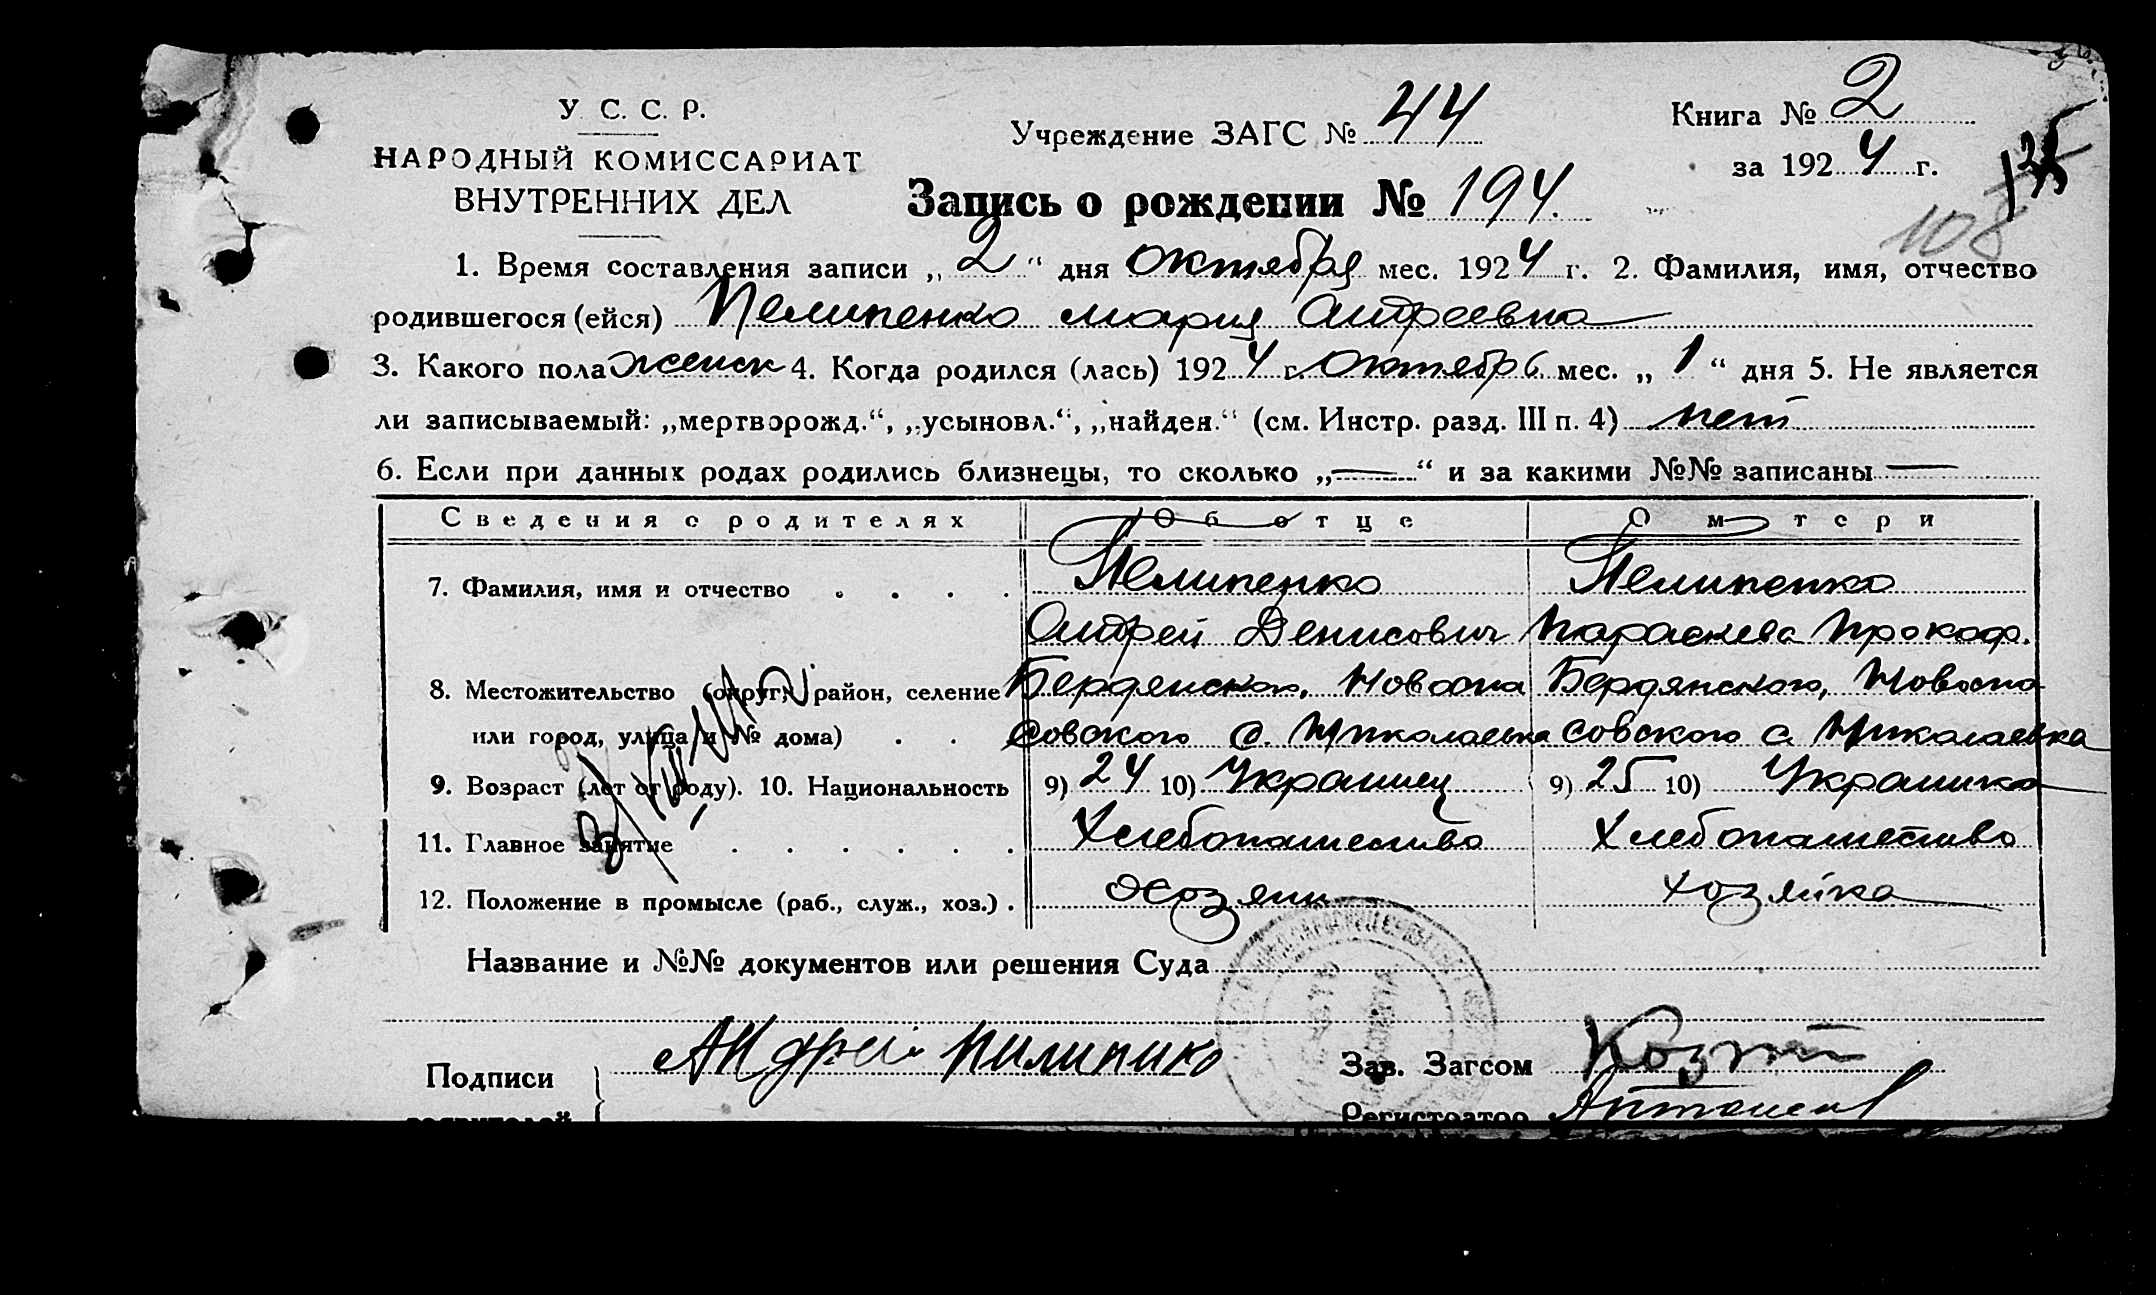 У. С. С. Р.
НАРОДНЫЙ КОМИССАРИАТ
ВНУТРЕННИХ ДЕЛ
Учреждение ЗАГС № 44
Книга № 2
за 1924 г.
125
108
Запись о рождении № 194.
1. Время составления записи „2“ дня Октября мес. 1924 г. 2. Фамилия, имя, отчество
родившегося (ейся) Пелипенко Мария Андреевна
3. Какого пола женск 4. Когда родился (лась) 1924 г. Октябрь мес. „1“ дня 5. Не является
ли записываемый: „мертворожд.“, „усыновл.“, „найден.“ (см. Инстр. разд. III п. 4) нет
6. Если при данных родах родились близнецы, то сколько „—“ и за какими №№ записаны —
Сведения о родителях Об отце О матери
7. Фамилия, имя и отчество . . . . Пелипенко Пелипенко
Андрей Денисович Параскева Прокоф.
8. Местожительство (округ, район, селение Бердянского, Новоспа Бердянского, Новоспа
или город, улица и № дома) . . совского с. Николаевка совского с. Николаевка
9. Возраст (лет от роду). 10. Национальность 9) 24 10) Украинец 9) 25 10) Украинка
11. Главное занятие . . . . . . Хлебопашество Хлебопашество
12. Положение в промысле (раб., служ., хоз.) . Хозяин хозяйка
Название и №№ документов или решения Суда
Подписи Андрей Пилипико Зав. Загсом
заявителей Регистратор